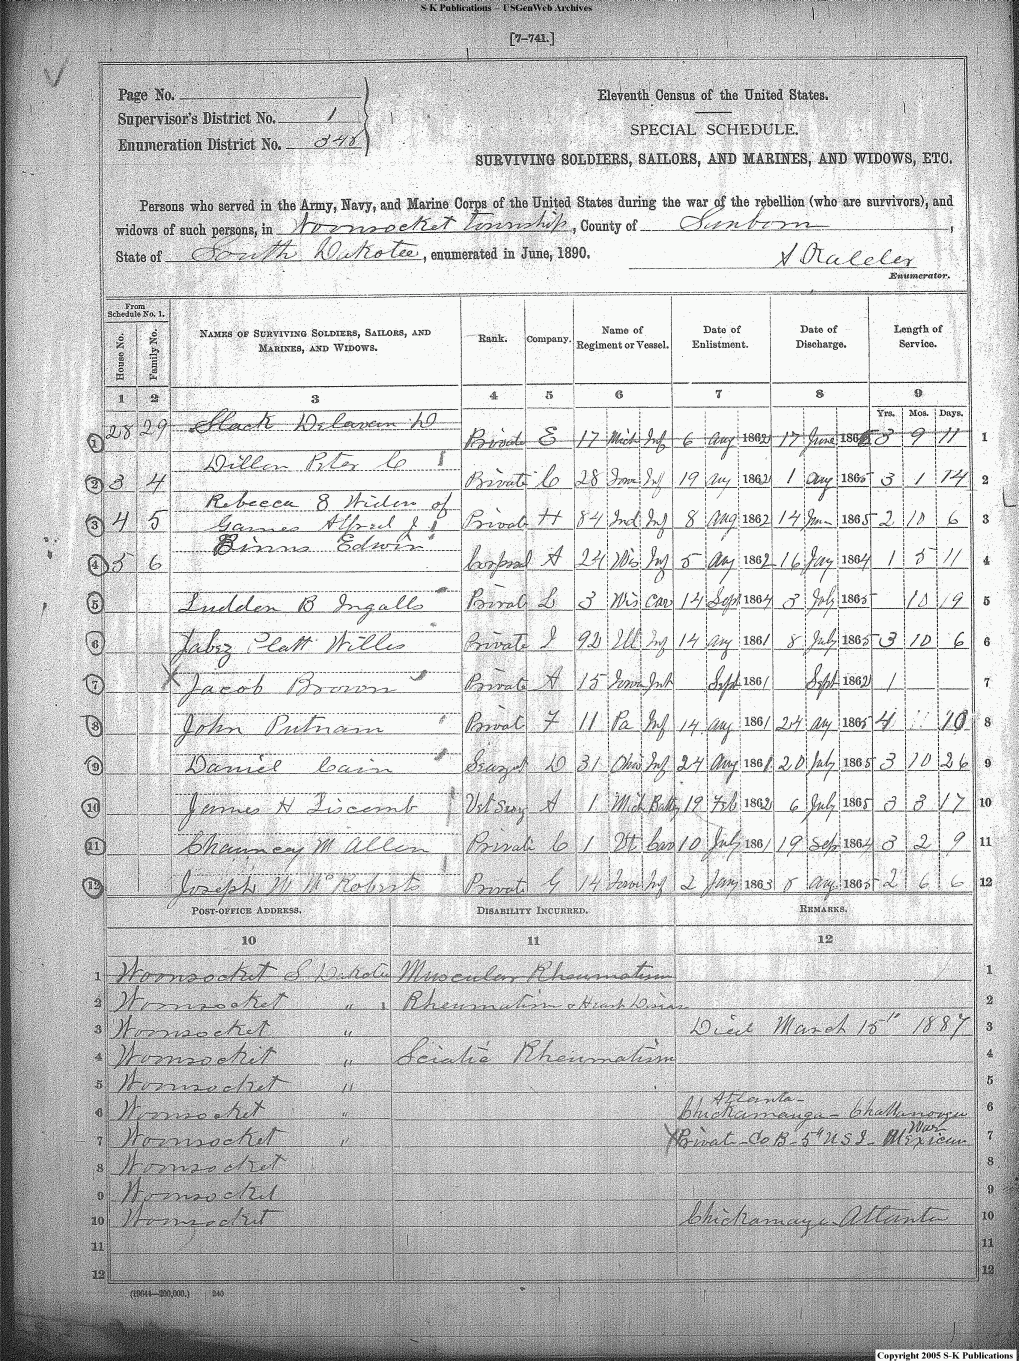 S-K Publications – USGenWeb Archives
[7–741.]
Page No.
Supervisor's District No. 1
Enumeration District No.
Eleventh Census of the United States.
SPECIAL SCHEDULE.
SURVIVING SOLDIERS, SAILORS, AND MARINES, AND WIDOWS, ETC.
Persons who served in the Army, Navy, and Marine Corps of the United States during the war of the rebellion (who are survivors), and
widows of such persons, in Woonsocket Township, County of Sanborn,
State of South Dakota, enumerated in June, 1890.
Enumerator.
From Schedule No. 1.
House No. Family No. NAMES OF SURVIVING SOLDIERS, SAILORS, AND MARINES, AND WIDOWS. Rank. Company. Name of Regiment or Vessel. Date of Enlistment. Date of Discharge. Length of Service.
1 2 3 4 5 6 7 8 9
Yrs. Mos. Days.
1 28 29 Slack Delavan D Private E 17 Mich Inf 6 Aug 1862 17 June 1865 3 9 11 1
2 3 4 Dillon Peter C Private C 28 Iowa Inf 19 Aug 1862 1 Aug 1865 3 1 14 2
Rebecca E Widow of
3 4 5 Games Alfred J Private H 84 Ind Inf 8 Aug 1862 14 Jun 1865 2 10 6 3
4 5 6 Binns Edwin Corporal A 24 Wis Inf 5 Aug 1862 16 Jany 1864 1 5 11 4
5 Ludden B Ingalls Privat L 3 Wis Cav 14 Sept 1864 3 July 1865 10 19 5
6 Jabez Platt Willis Private I 92 Ill Inf 14 Aug 1861 8 July 1865 3 10 6 6
7 X Jacob Brown Private A 15 Iowa Inf Sept 1861 Sept 1862 1 7
8 John Putnam Privat F 11 Pa Inf 14 Aug 1861 24 Aug 1865 4 10 8
9 Daniel Cain D 31 Ohio Inf 24 Aug 1861 20 July 1865 3 10 26 9
10 James H Liscomb Vet Surg A 1 Mich Batty 19 Feb 1862 6 July 1865 3 3 17 10
11 Chauncey M Allen Private C 1 Vt Cav 10 July 1861 19 Sep 1864 3 2 9 11
12 Joseph M McRoberts Private G 14 Iowa Inf 2 Jany 1863 8 Aug 1865 2 6 6 12
POST-OFFICE ADDRESS. DISABILITY INCURRED. REMARKS.
10 11 12
1 Woonsocket S Dakota Muscular Rheumatism 1
2 Woonsocket " Rheumatism & Heart Diseas 2
3 Woonsocket " Died March 15" 1887 3
4 Woonsockit " Sciatic Rheumatism 4
5 Woonsocket " 5
Atlanta-
6 Woonsocket " Chickamauga - Chattanooga 6
7 Woonsocket " X Privat - Co B - 5" U S I - Mexican War 7
8 Woonsocket 8
9 Woonsocket 9
10 Woonsocket Chickamaga Atlanta 10
11 11
12 12
(19644—200,000.) 240
Copyright 2005 S-K Publications